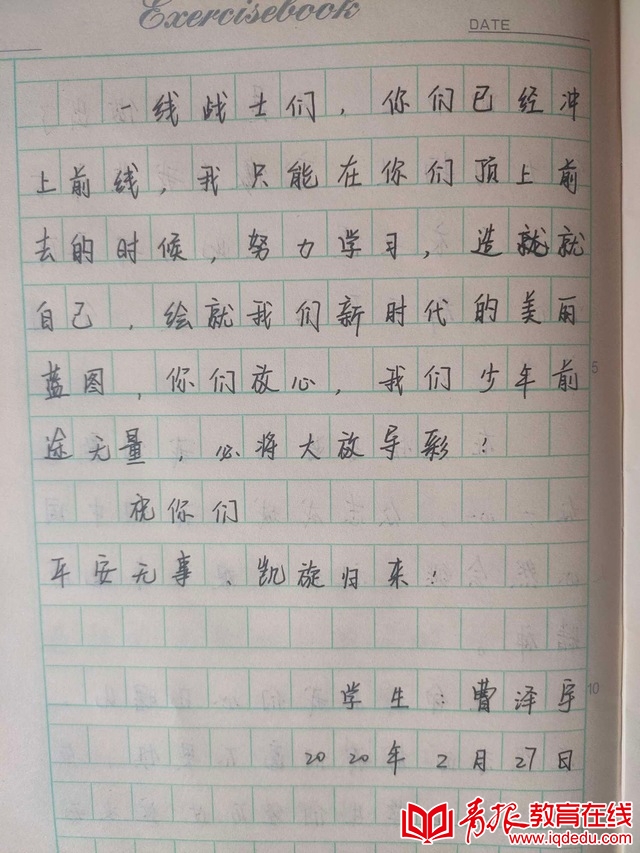 Exercisebook
DATE
一线战士们，你们已经冲
上前线，我只能在你们顶上前
去的时候，努力学习，造就就
自己，绘就我们新时代的美丽
蓝图，你们放心，我们少年前
途无量，必将大放导彩！
祝你们
平安无事、凯旋归来！
学生：曹泽宇
2020年2月27日
5
10
青报教育在线
www.iqdedu.com